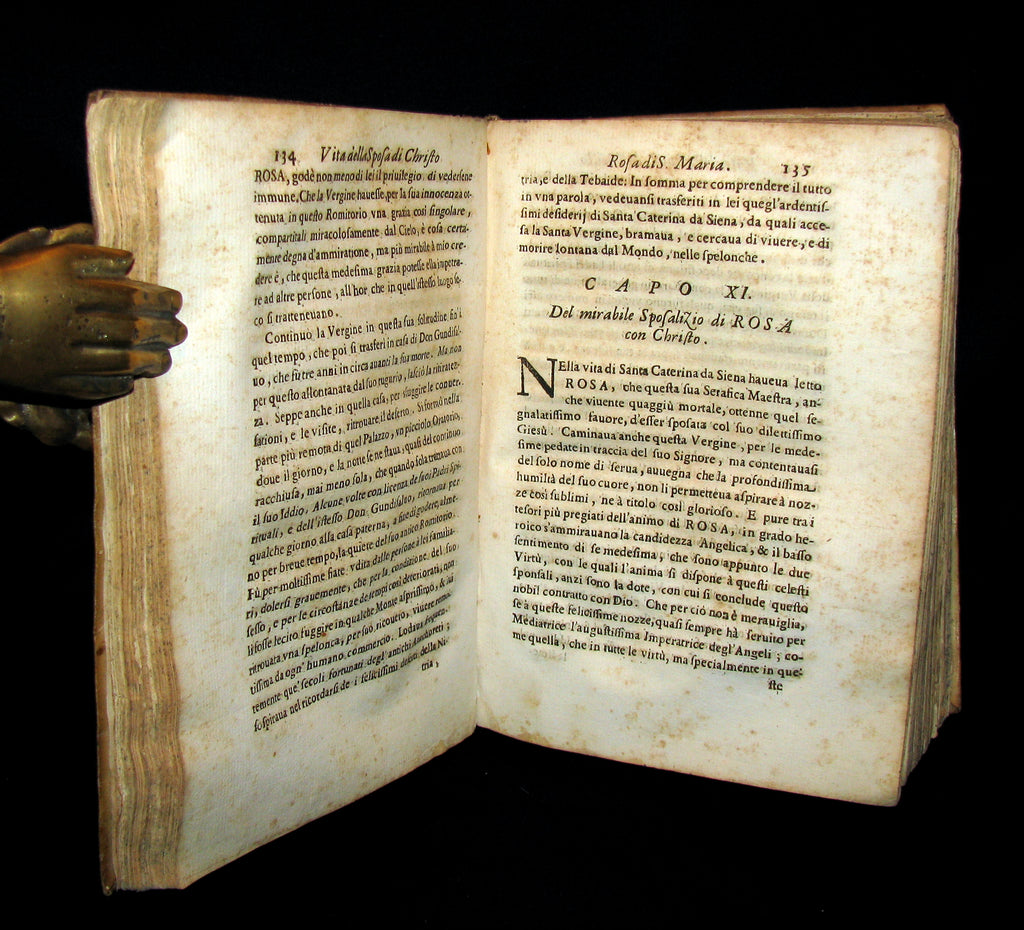 134 Vita della Spoſa di Chriſto
ROSA, godè non meno di lei il priuilegio di vederſene
immune. Che la Vergine haueſſe, per la ſua innocenza ot-
tenuta in queſto Romitorio vna grazia così ſingolare,
compartitali miracoloſamente dal Cielo, è coſa certa-
mente degna d'ammiratione, ma più mirabile à mio cre-
dere è, che queſta medeſima grazia poteſſe ella impetra-
re ad altre perſone, all'hor che in quell'iſteſſo luogo ſe-
co ſi tratteneuano.
Continuò la Vergine in queſta ſua ſolitudine fin'à
quel tempo, che poi ſi trasferì in caſa di Don Gundiſal-
uo, che fù tre anni in circa auanti la ſua morte. Ma non
per queſto allontanata dal ſuo tugurio, laſciò la ritiratez-
za. Seppe anche in quella caſa, per ſfuggire le conuer-
ſationi, e le viſite, ritrouare il deſerto. Si formò nella
parte più remota di quel Palazzo, vn picciolo Oratorio,
doue il giorno, e la notte ſe ne ſtaua, quaſi del continuo
racchiuſa, mai meno ſola, che quando ſola trattaua con
il ſuo Iddio. Alcune volte con licenza de ſuoi Padri Spi-
rituali, e dell'iſteſſo Don Gundiſaluo, ritornaua per
qualche giorno alla caſa paterna, a fine di godere, alme-
no per breue tempo, la quiete del ſuo antico Romitorio.
Fù per moltiſſime fiate vdita dalle perſone à lei familia-
ri, dolerſi grauemente, che per la conditione del ſuo
ſeſſo, e per le circoſtanze de tempi così deteriorati, non
li foſſe lecito fuggire in qualche Monte aſpriſſimo, & iui
ritrouata vna ſpelonca, per ſuo ricouero, viuere remo-
tiſſima da ogn' humano commercio. Lodaua
temente que' ſecoli fortunati degl'antichi Anacoreti;
ſoſpiraua nel ricordarſi de i feliciſſimi deſerti della Ni-
tria,
Roſa di S. Maria. 135
tria, e della Tebaide: In ſomma per comprendere il tutto
in vna parola, vedeuanſi trasferiti in lei quegl'ardentiſ-
ſimi deſiderij di Santa Caterina da Siena, da quali acce-
ſa la Santa Vergine, bramaua, e cercaua di viuere, e di
morire lontana dal Mondo, nelle ſpelonche.
CAPO XI.
Del mirabile Spoſalizio di ROSA
con Chriſto.
NElla vita di Santa Caterina da Siena haueua letto
ROSA, che queſta ſua Serafica Maeſtra, an-
che viuente quaggiù mortale, ottenne quel ſe-
gnalatiſſimo fauore, d'eſſer ſpoſata col ſuo dilettiſſimo
Giesù. Caminaua anche queſta Vergine, per le mede-
ſime pedate in traccia del ſuo Signore, ma contentauaſi
del ſolo nome di ſerua, auuegna che la profondiſſima
humiltà del ſuo cuore, non li permetteua aſpirare à noz-
ze così ſublimi, ne à titolo così glorioſo. E pure tra i
teſori più pregiati dell'animo di ROSA, in grado he-
roico s'ammirauano la candidezza Angelica, & il baſſo
ſentimento di ſe medeſima, che ſono appunto le due
Virtù, con le quali l'anima ſi diſpone à queſti celeſti
ſponſali, anzi ſono la dote, con cui ſi conclude queſto
nobil contratto con Dio. Che per ciò non è merauiglia,
ſe à queſte feliciſſime nozze, quaſi ſempre hà ſeruito per
Mediatrice l'auguſtiſſima Imperatrice degl'Angeli; co-
me quella, che in tutte le virtù, ma ſpecialmente in que-
ſte